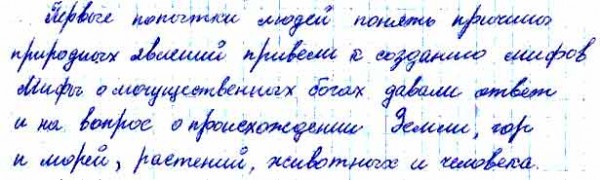 Первые попытки людей понять причины
природных явлений привели к созданию мифов
Мифы о могущественных богах давали ответ
и на вопрос о происхождении Земли, гор
и морей, растений, животных и человека.